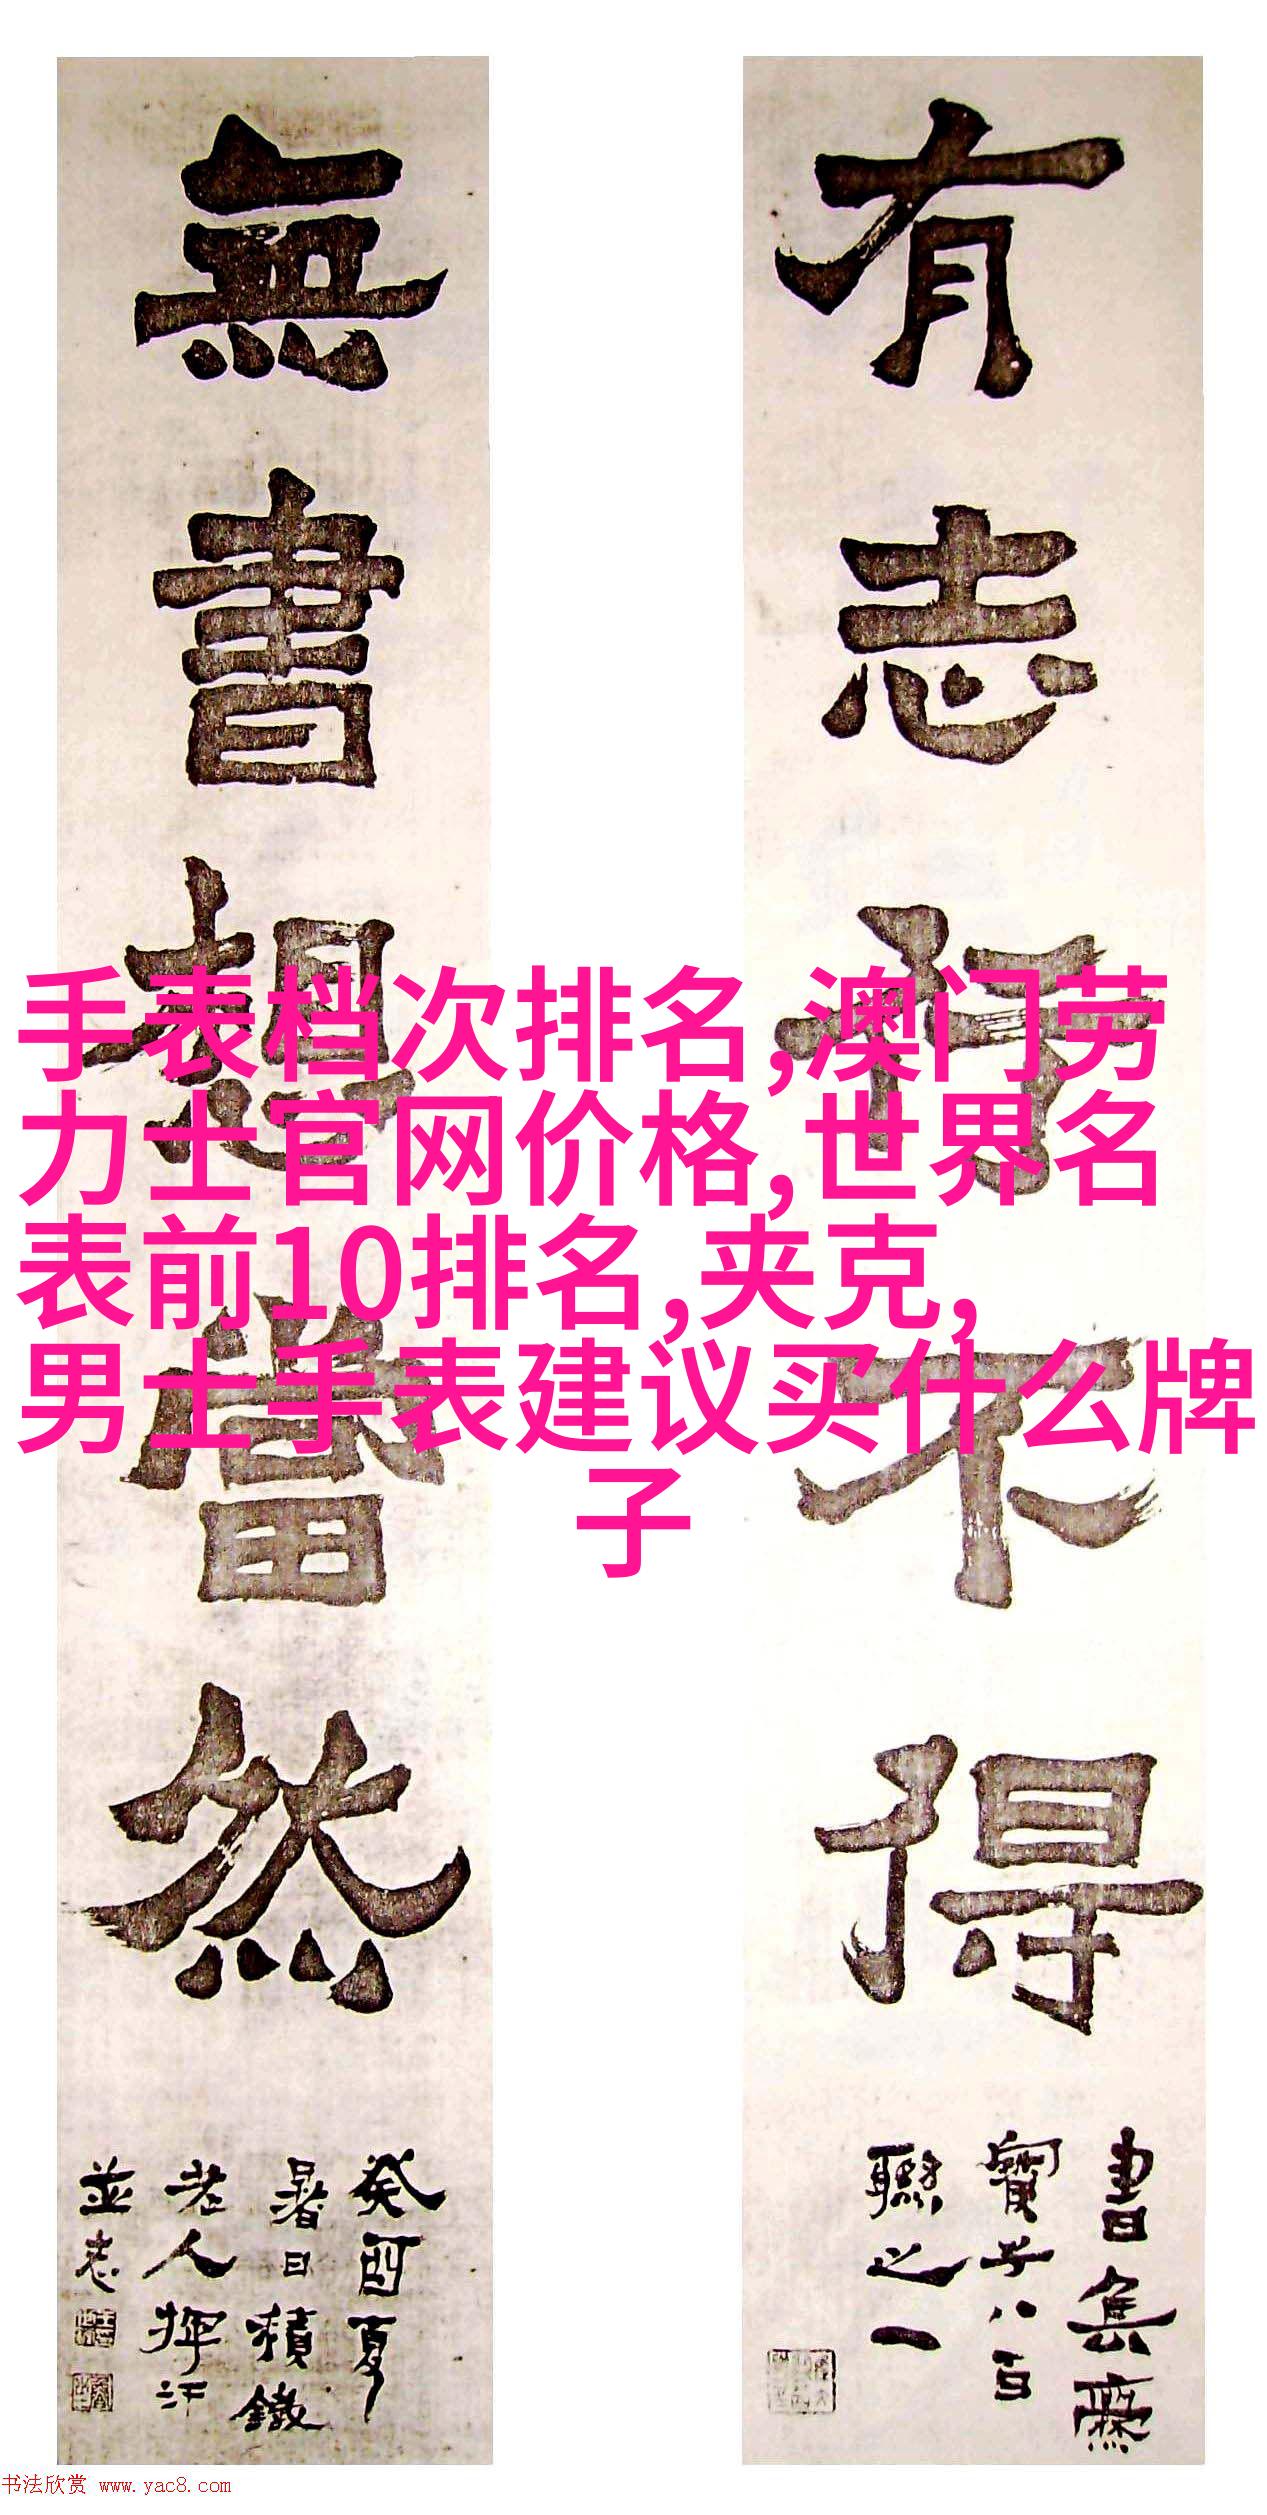 有志符不得
無書想當然
書焦廡
實子八百
聯之一
癸酉夏
暑日積鐵
老人揮汗
並志
手表档次排名,澳门劳
力士官网价格,世界名
表前10排名,夹克,
男士手表建议买什么牌
子
书法欣赏 www.yac8.com